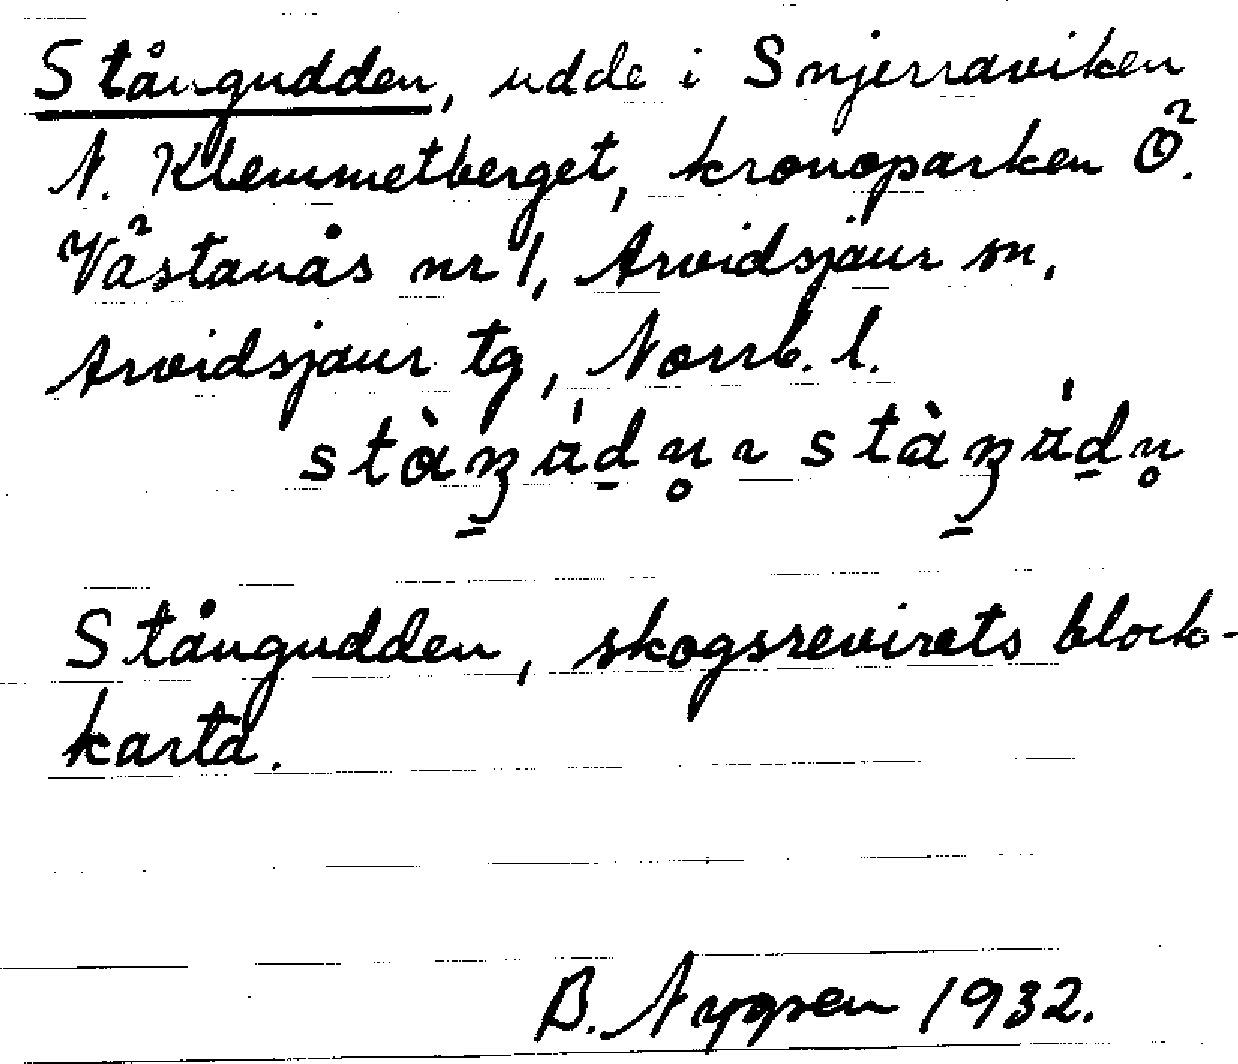 Stångudden, udde i Snjerraviken
N. Klemmetberget, kronoparken Ö.
Västanås nr 1, Arvidsjaur sn,
Arvidsjaur tg, Norrb. l.
Stångudden, skogsrevirets block-
karta.
B. Nygren 1932.